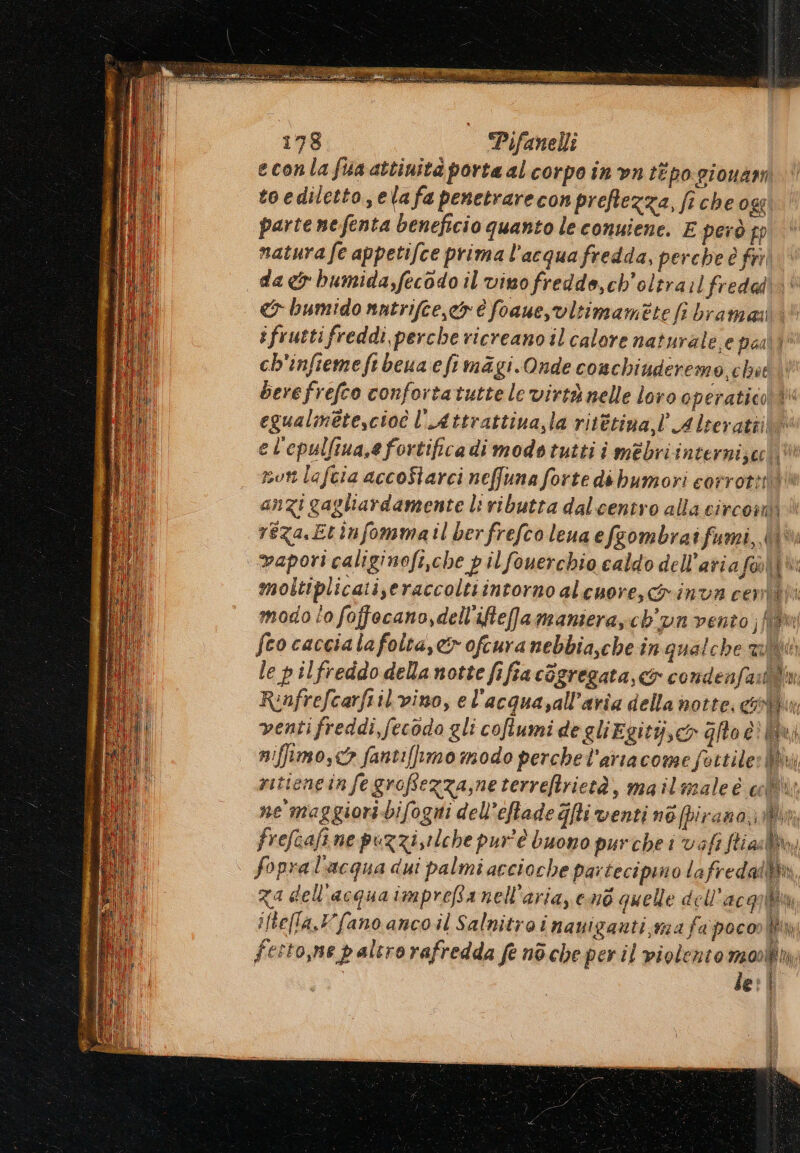 178 Piſanelli
e con la ſua attinità porta al corpo in vn tẽpo giouam
to e diletto, e la fa penetrare con preſtezza, ſi che ogg
parte ne ſenta beneficio quanto le conuiene. E però
natura ſe appetiſce prima l'acqua fredda, perche è fri
da & humida, ſecõdo il vino freddo, ch'oltra il fredd
& humido nutriſce, & è ſoaue, vltimamẽte ſi braman
i frutti freddi, perche ricreano il calore naturale, e pa
ch'inſieme ſi beua e ſi mãgi. Onde conchiuderemo, che
bere freſco conforta tutte le virtù nelle loro operatio
egualmẽte, cioè l'Attrattiua, la ritẽtiua, l'Alterati
e l'epulſiua, e fortifica di modo tutti i mẽbri interni, &
non laſcia accoſtarci neſſuna ſorte di humori corrotti
anzi gagliardamente li ributta dal centro alla circon
rẽza. Et in ſomma il ber freſco leua e ſgombra i fumi,
vapori caliginoſi, che p il ſouerchio caldo dell'aria ſo
moltiplicati, e raccolti intorno al cuore, & in vn cer
modo lo ſoffocano, dell'iſteſſa maniera, ch'vn vento
ſco caccia la folta, & oſcura nebbia, che in qualche
le p il freddo della notte ſi ſia cõgregata, & condenſa
Rinfreſcarſi il vino, e l'acqua, all'aria della notte, &
venti freddi, ſecõdo gli coſtumi de gli Egitij, & q̃ſto è
niſſimo, & ſantiſſimo modo perche l'aria come ſottile
ritiene in ſe groſſezza, ne terreſtrietà, ma il male è
ne' maggiori biſogni dell'eſtade q̃ſti venti nõ ſpirano,
freſcaſi ne pozzi, ilche pur'è buono pur che i vaſi ſtia
ſopra l'acqua dui palmi accioche partecipino la freda
za dell'acqua impreſſa nell'aria, e nõ quelle dell'acq
iſteſſa. V'ſano anco il Salnitro i nauiganti, ma fa poco
fetto, ne p altro rafredda ſe nõ che per il violento mo
le